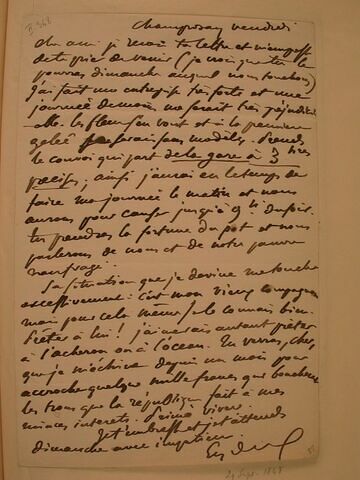 Champrosay vendredi
cher ami je reçois ta lettre et m'empresse
de te prier de venir (je vois que tu le
pourras dimanche auquel nous touchons)
J'ai fait une entreprise très forte et une
journée de moins me serait très préjudici
able. les fleurs s'en vont et à la première
gelée je serai sans modèles. Prends
le convoi qui part de la gare à 3 heures
précises; ainsi j'aurai eu le temps de
faire ma journée le matin et nous
aurons pour causer jusqu'à 9h. du soir.
Tu prendras la fortune du pot et nous
parlerons de nous et de notre pauvre
naufragé.
Sa situation que je devine me touche
excessivement: c'est mon vieux compagnon
mais pour cela même je le connais bien.
Prêter à lui! j'aimerais autant prêter
à l'achéron ou à l'océan. Tu verras, cher,
que je m'échine depuis un mois pour
accrocher quelque mille francs qui boucheront
les trous que la république fait à mes
minces interets. Primò vivere.
Je t'embrasse et je t'attends
dimanche avec impatience.
Eug Del
29 Sept. 1848